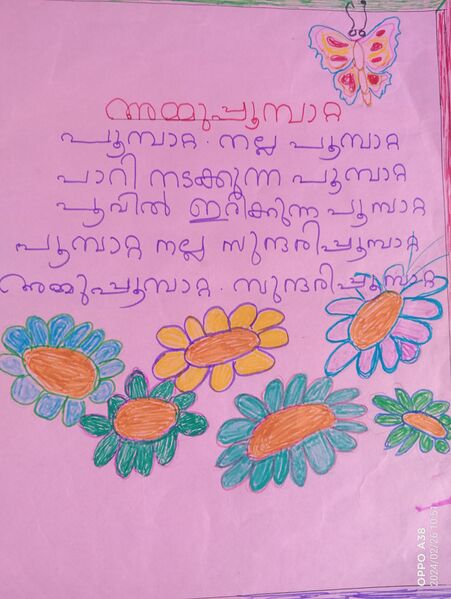 അമ്മുപ്പൂമ്പാറ്റ
പൂമ്പാറ്റ. നല്ല പൂമ്പാറ്റ
പാറി നടക്കുന്ന പൂമ്പാറ്റ
പൂവിൽ ഇരിക്കുന്ന പൂമ്പാറ്റ
പൂമ്പാറ്റ നല്ല സുന്ദരിപ്പൂമ്പാറ്റ
അമ്മുപ്പൂമ്പാറ്റ. സുന്ദരിപ്പൂമ്പാറ്റ
OPPO A38
2024/02/26 10:51